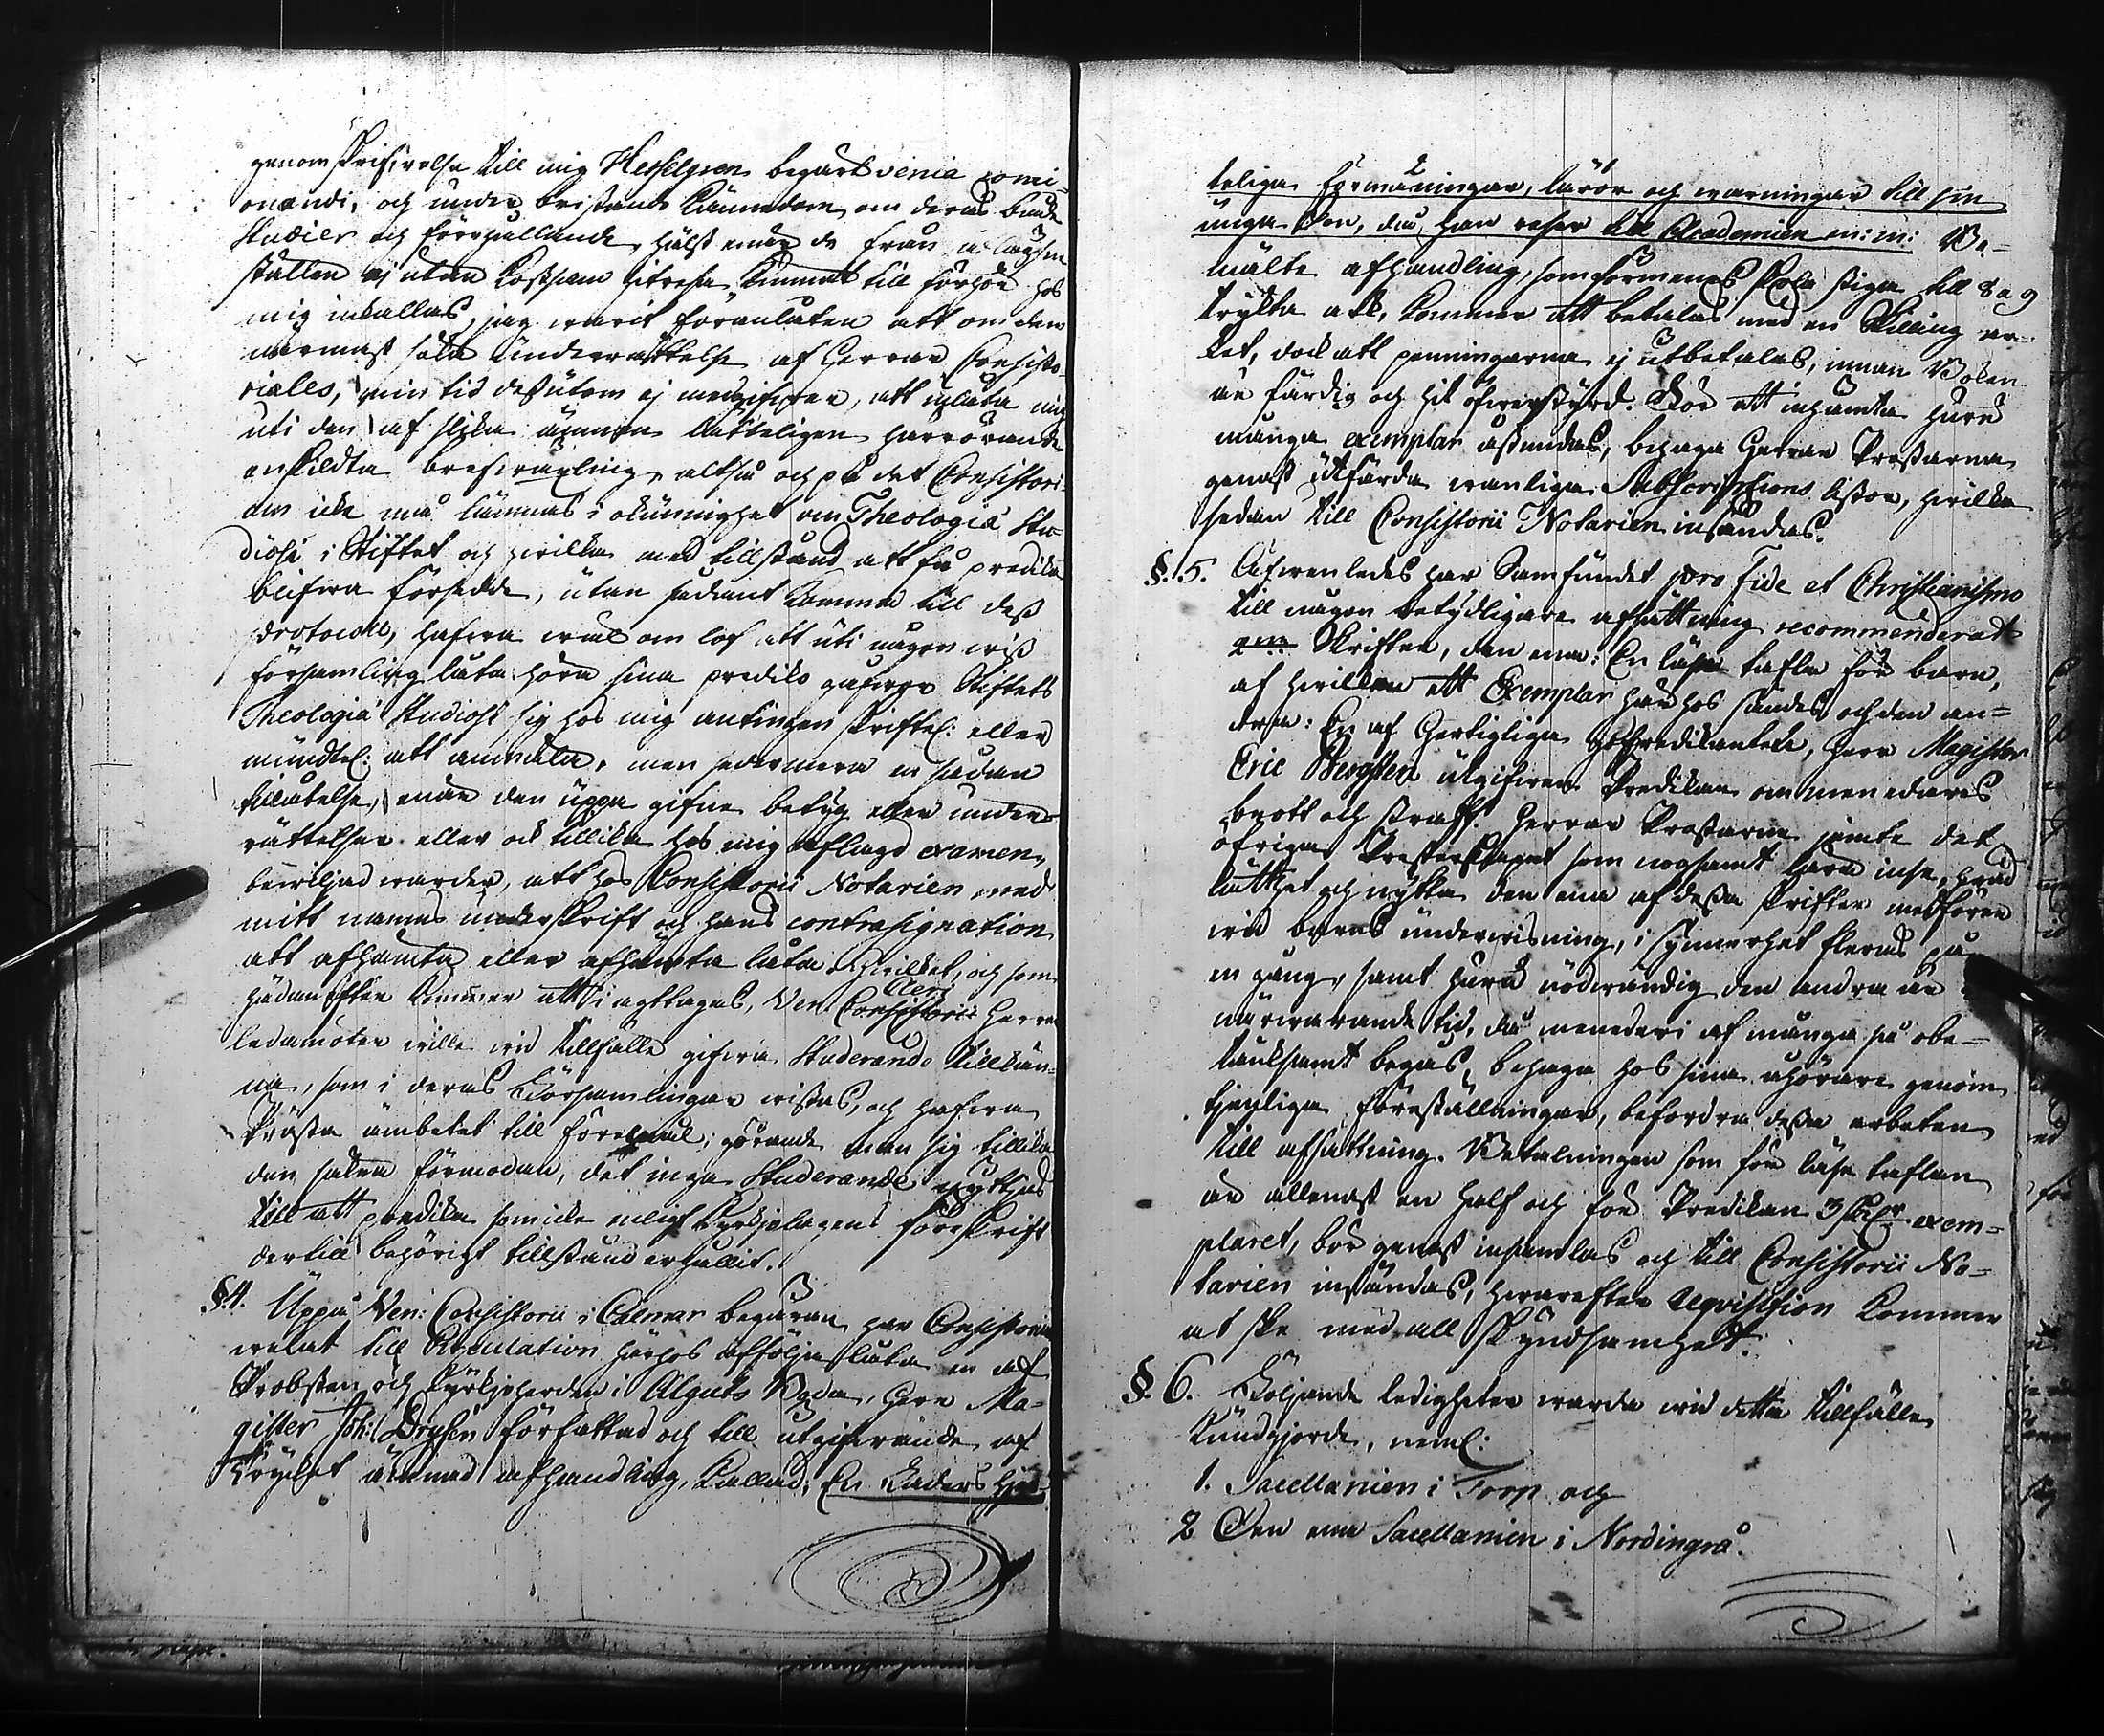 genom skrifvelse till mig Hesselgren begärt venia concionandi, och under bristande kännedom om deras både
studier och förhållande, hälst emedan de från aflägsne
ställen ej utan kostsam hitresa kunnat till förhör hos
mig inkallas, jag warit föranlåten att om dem
närmast söka underrättelse af Herrar Consisto-
riales, min tid dessutom ej medgifver, att inlåta mig
uti den af slika ämnen lätteligen härrörande
enskildta brefwäxling, altså och på det Consistori-
um icke må lämnas i okunnighet om Theologiæ Stu-
diosi i Stiftet och hvilka med tillstånd att få predika
blifva försedde, utan sådant komma till dess
protocoll, hafva wäl om lof att uti någon wiss
församling låta höra sina prediko gåfvor Stiftets
Theologiæ Studiosi sig hos mig antingen skriftel: eller
mundtel: att anmäla, men sedermera en sådan
tillåtelse, när den uppå gifne betyg eller under-
rättelser eller ock tillika hos mig aflagd examen,
bewiljad warder, att hos Consistorii Notarien med
mitt namns underskrift och hans contrasignation
att afhämta eller afhämta låta; hvilket, och som
Cleri
hädanefter kommer att iagttagas, Ven: Consistorii Herrar
ledamöter wille wid tillfälle gifva Studerande tillkän-
na, som i deras Församlingar wistas, och hafva
Prästa ämbetet till föremål; görande man sig tillika
den säkra förmodan, det inga Studerande nyttjas
till att predika som icke enligt Kyrkjolagens föreskrift
dertill behörigt tillstånd erhållit.
§.4. Uppå Ven: Consistorii i Calmar begäran har Consistorium
welat till Circulation härhos afföljja låta en af
Probsten och Kyrkjoherden i Alguts Boda, Herr Ma-
gister Joh: Dryselii författad och till utgifvande af
Trycket ämnad afhandling, kallad: En Faders hjer-
teliga förmaningar, läror och warningar till sin
unga Son, då han reser till Academien m: m: Be-
mälte afhandling, som förmenas skola stiga till 8 a 9
trykta ark, kommer att betalas med en Skilling ar-
ket, dock att penningarna ej utbetalas, innan Boken
är färdig och hit öfverstyrd. För att inhämta huru
många exemplar åstundas, behaga Herrar Prostarna
genast utfärda wanliga Subscriptions listor, hvilka
sedan till Consistorii Notarien insändas.
§.5. Äfwenledes har Samfundet pro Fide et Christianismo
till någon betydligare afsättning recommenderat
2ne Skrifter, den ena: En läse tafla för barn,
af hvilken ett Exemplar härhos sändes och den an-
dra: En af Hertigliga HofPredikanten, Herr Magister
Eric Bergsten utgifven Predikan om menedares
brott och straff. Herrar Prostarne jemte det
öfriga Presterskapet som nogsamt lära inse, hvad
lätthet och nytta den ena af dessa skrifter medförer
wid barns underwisning, i synnerhet fleras på
en gång, samt huru nödwändig den andra är i
närwarande tid, då menederi af många så obe-
tänksamt begås, behaga hos sina åhörare genom
tjenliga föreställningar, befordra dessa arbeten
till afsättning. Betalningen som för läse taflan
är allenast en half och för Predikan 3 skilr exem-
plaret, bör genast insamlas och till Consistorii No-
tarien insändas, hvarefter Reqvisition kommer
at ske med all skyndsamhet.
§.6. Följande ledigheter warda wid detta tillfälle
kundgjorde, neml:
1. Sacellanien i Torp och
2 Den ena Sacellanien i Nordingrå.